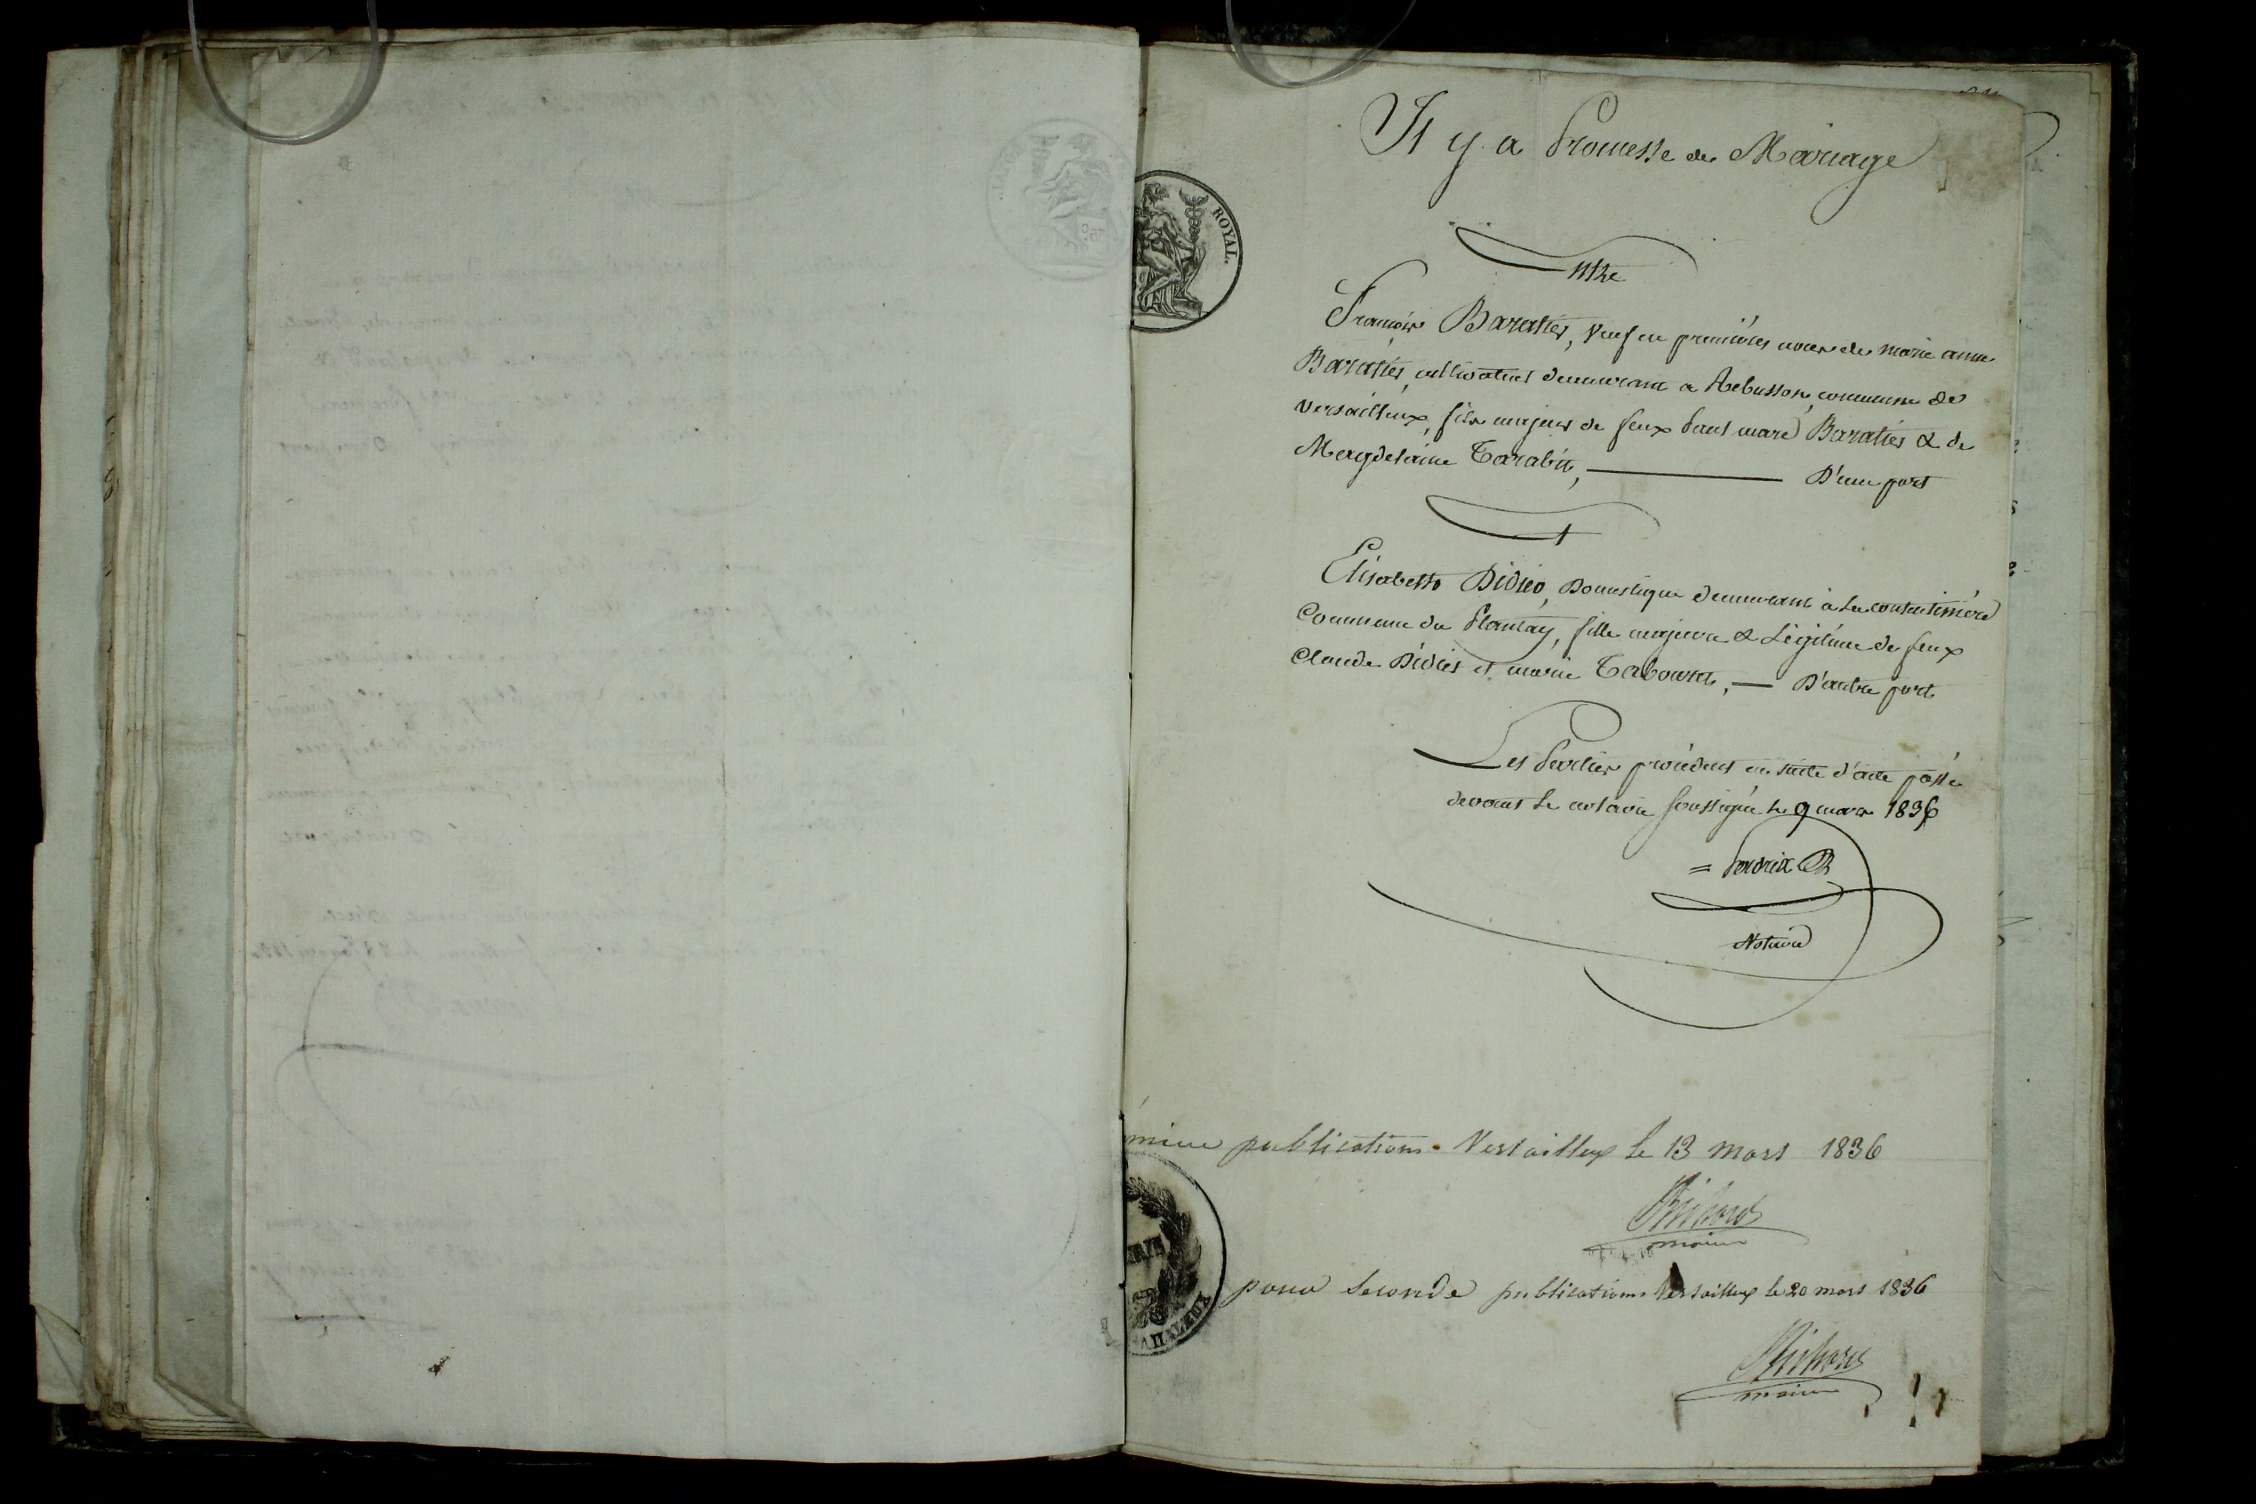 Il y a Promesse de Mariage
Entre
François Baratier, veuf en premières noces de marie anne
Baratier, cultivateur demeurant a Rebusson, commune de
versailleux, fils majeur de feux Paul marc Baratier & de
Magdelaine Tarabit, D'une part
Et
Elisabeth Didier, Domestique demeurant à la
Commune du Plantay, fille majeure & Légitime de feux
Claude Didier et marie Tabouret, D'autre part
Les Parties procédent en suite d'acte passé
devant le notaire soussigné le 9 mars 1836
= Perdrix
Notaire
publication Versailleux le 13 mars 1836
Richard
maire
pour seconde publication Versailleux le 20 mars 1836
Richard
maire
ROYAL.